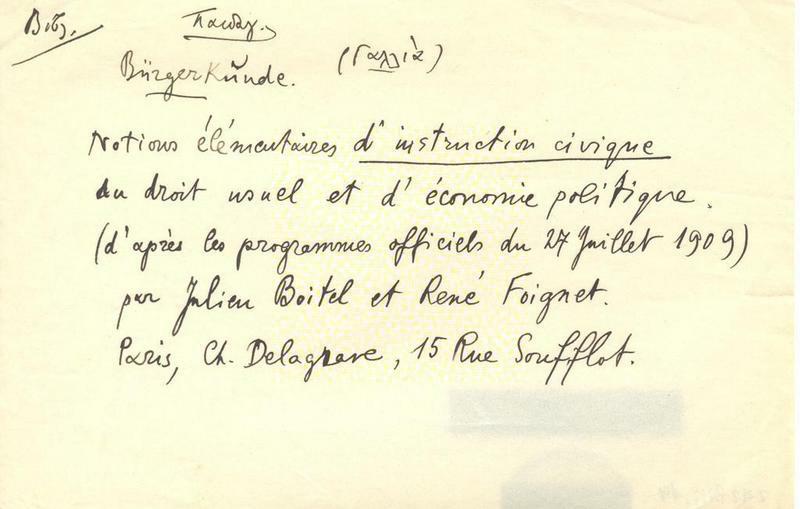 Βιβ.
Παιδαγ.
Bürgerkunde. (Γαλλία)
Notions élémentaires d'instruction civique
du droit usuel et d'économie politique.
(d'après les programmes officiels du 27 Juillet 1909)
par Julien Boitel et René Foignet.
Paris, Ch. Delagrave, 15 Rue Soufflot.